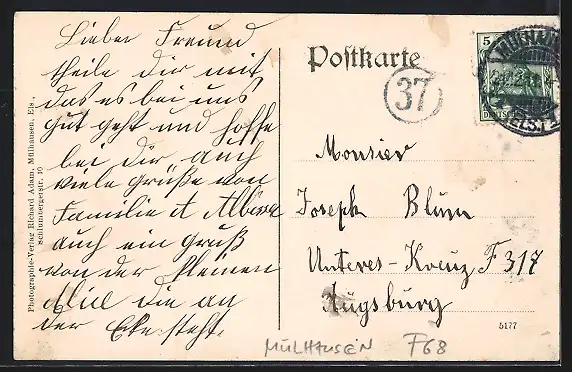 Lieber Freund
theile dir mit
das es bei uns
gut geht und hoffe
bei dir auch
viele Grüße von
Familie A
auch ein Gruß
von der kleinen
Alice die an
der Ecke steht.
Photographie-Verlag Richard Adam, Mülhausen, Els.,
Schlumbergerstr. 10
Postkarte
37
5
Monsier
Joseph Blum
Unteres-Kreuz F 317
Augsburg
5177
MÜLHAUSEN F68